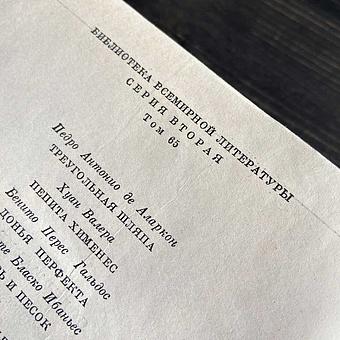 БИБЛИОТЕКА ВСЕМИРНОЙ ЛИТЕРАТУРЫ
СЕРИЯ ВТОРАЯ
Том 65
Педро Антонио де Аларкон
ТРЕУГОЛЬНАЯ ШЛЯПА
Хуан Валера
ПЕПИТА ХИМЕНЕС
Бенито Перес Гальдос
ДОНЬЯ ПЕРФЕКТА
Бласко Ибаньес
И ПЕСОК